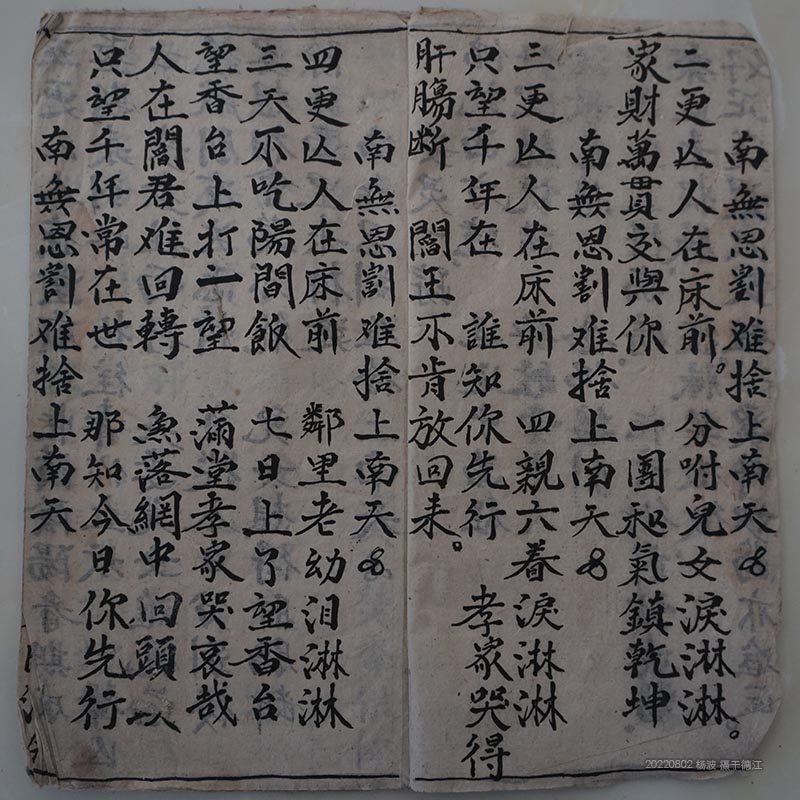 南無恩割难捨上南天
二更亾人在床前。 分咐兒女淚淋淋。
家財萬貫交與你 一團和氣鎮乾坤
南無恩割难捨上南天
三更亾人在床前 四親六眷淚淋淋
只望千年在 誰知你先行 孝家哭得
肝腸断 閻王不肯放回来。
南無恩割难捨上南天
四更亾人在床前 鄰里老幼泪淋淋
三天不吃陽間飯 七日上了望香台
望香台上打一望 滿堂孝家哭哀哉
人在閻君难回轉 魚落網中回頭
只望千年常在世 那知今日你先行
南無恩割难捨上南天
20220802 杨波 摄于德江